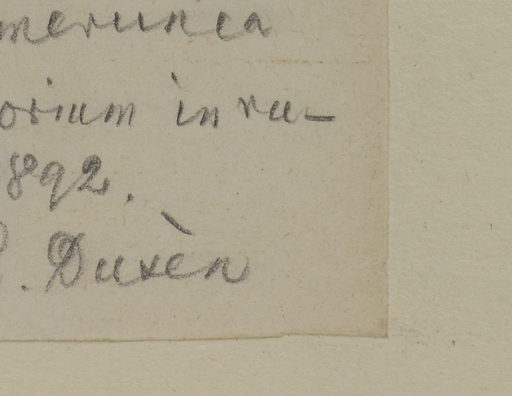 merunea
orium in ru-
892.
. Dusèn